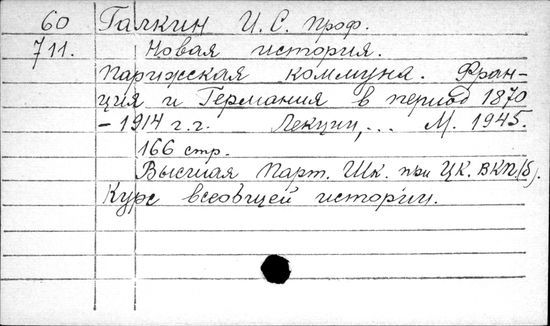 60 Галкин И. С. проф.
711. Новая история.
Парижская коммуна. Фран-
ция и Германия в период 1870
– 1914 г.г. Лекции,... М. 1945.
166 стр.
Высшая Парт. Шк. при ЦК. ВКП(б).
Курс всеобщей истории.